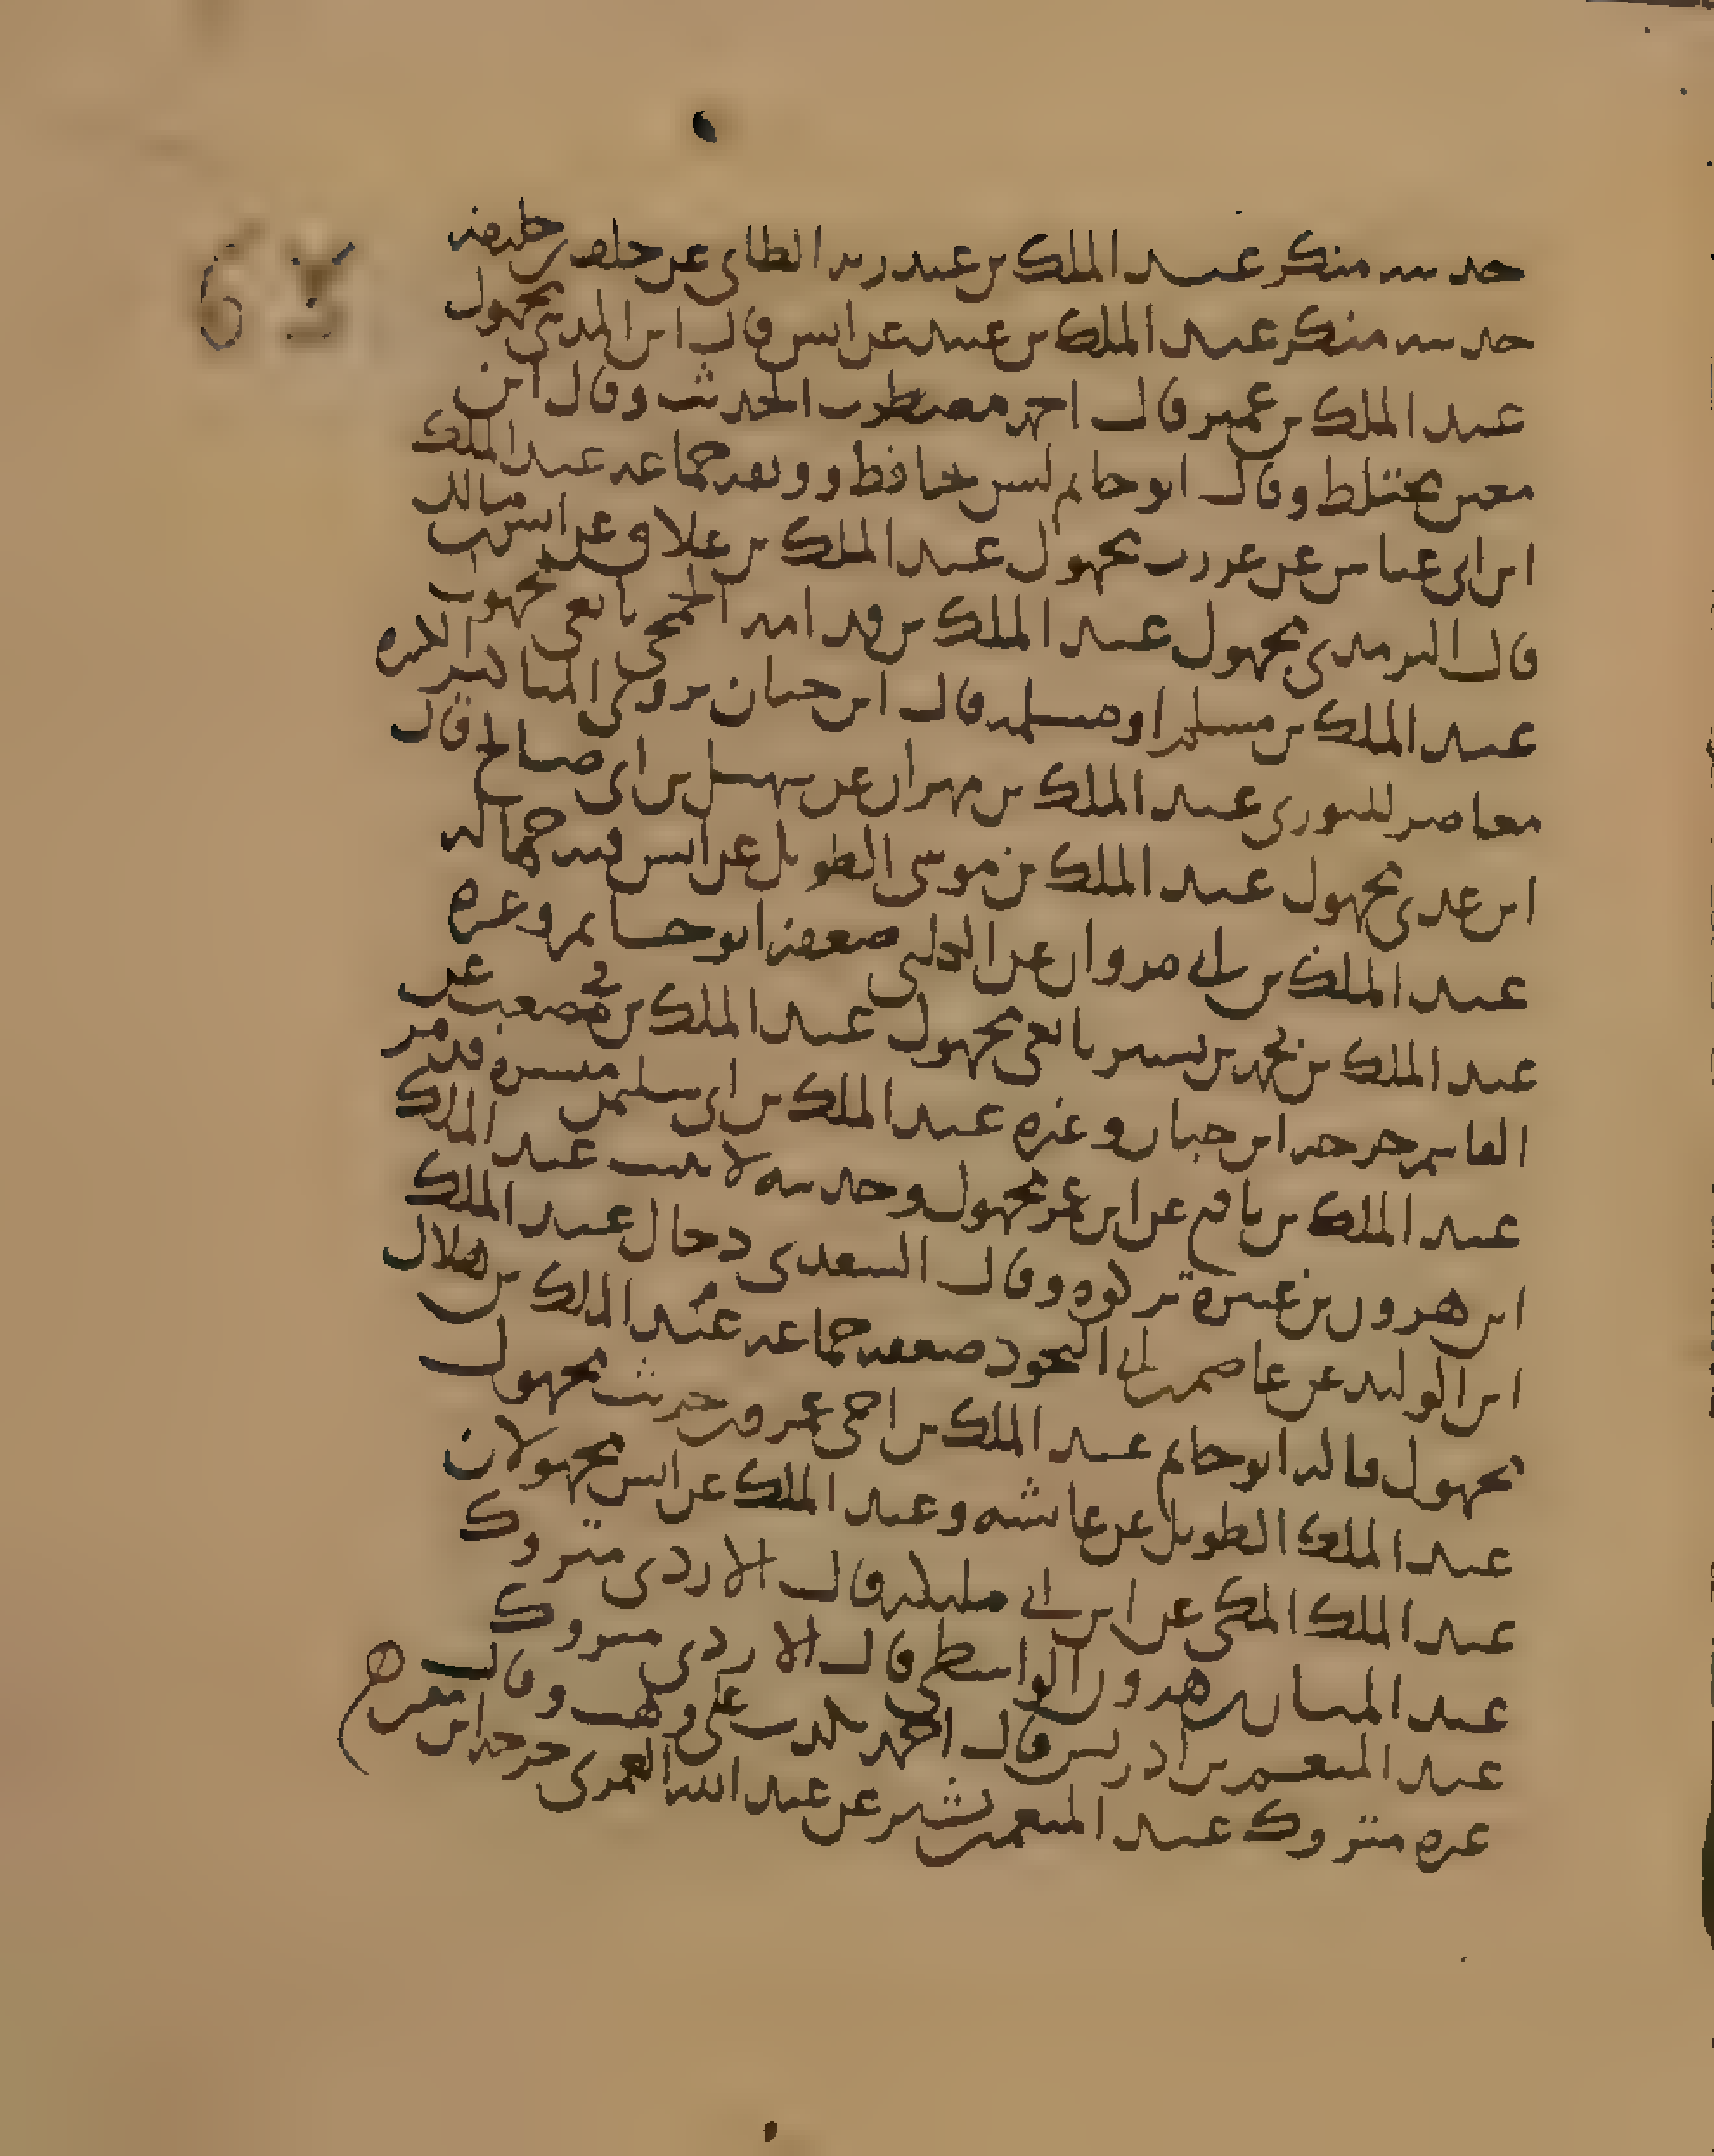 حديثه منكر عبد الملك بن عبد ربه الطاى عن خلف بن خليفه
حديثه منكر عبد الملك بن عبيد عن انس قال ابن المديني مجهول
عبد الملك بن عمير قال احمد مضطرب الحديث وقال ابن
معين مختلط وقال ابو حاتم ليس بحافظ ووثقه جماعه عبد الملك
ابن ابى عياش عن عرزب مجهول عبد الملك بن علاق عن انس بن مالك
قال الترمدى مجهول عبد الملك بن قدامه الجمحى تابعى مجهول
عبد الملك بن مسلم او مسلمه قال ابن حبان يروى المناكير الكثيره
معاصر للثورى عبد الملك بن مهران عن سهيل بن ابى صالح قال
ابن عدى مجهول عبد الملك بن موسى الطويل عن انس فيه جهاله
عبد الملك بن ابى مروان عن ضعفه ابو حاتم وغيره
عبد الملك بن محمد بن بشير تابعى مجهول عبد الملك بن مصعب عن
القاسم جرحه ابن حبان وغيره عبد الملك بن ابى سليمن ميسره قد مر
عبد الملك بن نافع عن ابن عمر مجهول وحديثه لا يثبت عبد الملك
ابن هرون بن عنتره تركوه وقال السعدى دجال عبد الملك
ابن الوليد عن عاصم بن ابى النجود ضعفه جماعه عبد الملك بن هلال
مجهول قاله ابو حاتم عبد الملك بن اخى عمرو بن حريث مجهول
عبد الملك الطويل عن عايشه وعبد الملك عن انس مجهولان
عبد الملك المكى عن ابن ابى مليكه قال الازدى متروك
عبد المنان بن هرون الواسطى قال الازدى متروك
عبد المنعم بن ادريس قال احمد يكذب على وهب وقال
غيره متروك عبد المنعم بن بشير عن عبد الله العمرى جرحه ابن معين